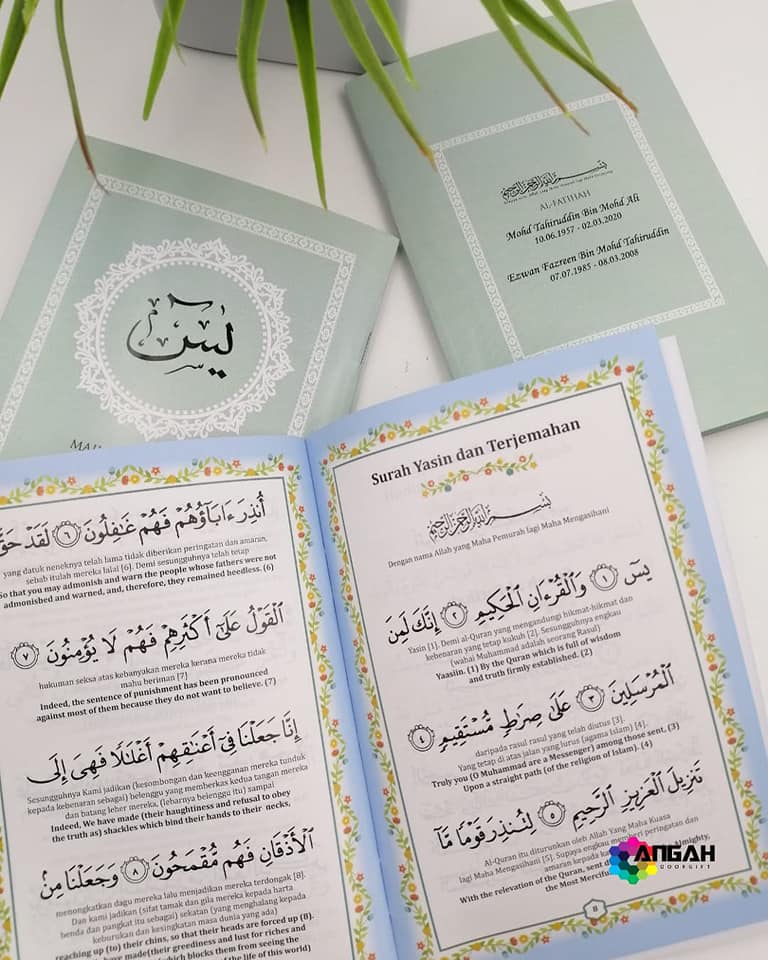 يسٓ
بسم الله الرحمن الرحيم
AL-FATIHAH
Mohd Tahiruddin Bin Mohd Ali
10.06.1957 - 02.03.2020
Ezwan Fazreen Bin Mohd Tahiruddin
07.07.1985 - 08.03.2008
Surah Yasin dan Terjemahan
بسم الله الرحمن الرحيم
Dengan nama Allah yang Maha Pemurah lagi Maha Mengasihani
يسٓ ۝١ وَٱلْقُرْءَانِ ٱلْحَكِيمِ ۝٢ إِنَّكَ لَمِنَ
Yasin [1]. Demi al-Quran yang mengandungi hikmat-hikmat dan
kebenaran yang tetap kukuh [2]. Sesungguhnya engkau
(wahai Muhammad adalah seorang Rasul)
Yaasiin. (1) By the Quran which is full of wisdom
and truth firmly established. (2)
ٱلْمُرْسَلِينَ ۝٣ عَلَىٰ صِرَٰطٍ مُّسْتَقِيمٍ ۝٤
daripada rasul rasul yang telah diutus [3].
Yang tetap di atas jalan yang lurus (agama Islam) [4].
Truly you (O Muhammad are a Messenger) among those sent. (3)
Upon a straight path (of the religion of Islam). (4)
تَنزِيلَ ٱلْعَزِيزِ ٱلرَّحِيمِ ۝٥ لِتُنذِرَ قَوْمًا مَّآ
Al-Quran itu diturunkan oleh Allah Yang Maha Kuasa
lagi Maha Mengasihani [5]. Supaya engkau memberi peringatan dan
amaran kepada
With the relevation of the Quran, sent Almighty,
the Most
8
أُنذِرَ ءَابَآؤُهُمْ فَهُمْ غَٰفِلُونَ ۝٦ لَقَدْ حَقَّ
yang datuk neneknya telah lama tidak diberikan peringatan dan amaran,
sebab itulah mereka lalai [6]. Demi sesungguhnya telah tetap
So that you may admonish and warn the people whose fathers were not
admonished and warned, and, therefore, they remained heedless. (6)
ٱلْقَوْلُ عَلَىٰٓ أَكْثَرِهِمْ فَهُمْ لَا يُؤْمِنُونَ ۝٧
hukuman seksa atas kebanyakan mereka kerana mereka tidak
mahu beriman [7]
Indeed, the sentence of punishment has been pronounced
against most of them because they do not want to believe. (7)
إِنَّا جَعَلْنَا فِىٓ أَعْنَٰقِهِمْ أَغْلَٰلًا فَهِىَ إِلَى
Sesungguhnya Kami jadikan (kesombongan dan keengganan mereka tunduk
kepada kebenaran sebagai) belenggu yang memberkas kedua tangan mereka
dan batang leher mereka, (lebarnya belenggu itu) sampai
Indeed, We have made (their haughtiness and refusal to obey
the truth as) shackles which bind their hands to their necks,
ٱلْأَذْقَانِ فَهُم مُّقْمَحُونَ ۝٨ وَجَعَلْنَا مِنۢ
menongkatkan dagu mereka lalu menjadikan mereka terdongak [8].
Dan kami jadikan (sifat tamak dan gila mereka kepada harta
benda dan pangkat itu sebagai) sekatan (yang menghalang kepada
keburukan dan kesingkatan masa dunia yang ada)
reaching up (to) their chins, so that their heads are forced up (8).
have made(their greediness and lust for riches and
which blocks them from seeing the
of the life of this world)
ANGAH